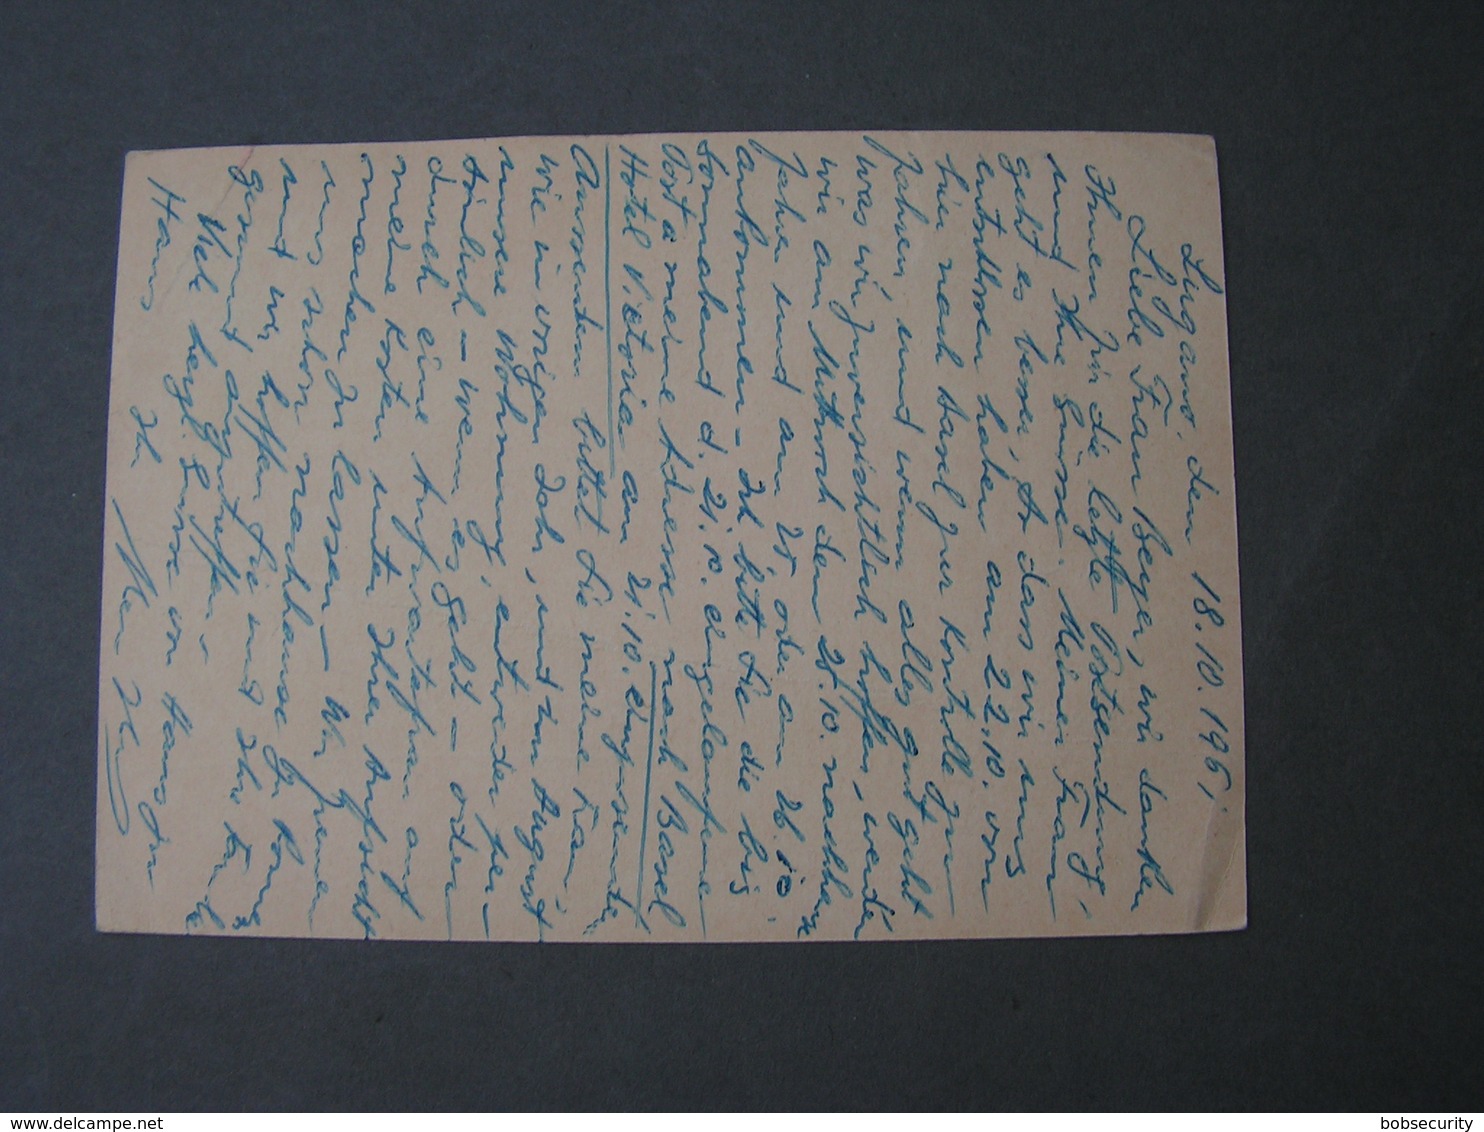 Lugano, den 18.10.196
Liebe Frau Beyer, wir danken
Ihnen für die letzte Postsendung,
und Ihre Grüsse. Meiner Frau
geht es besser, so dass wir uns
entschlossen haben am 22.10. von
hier nach Basel zur Kontrolle zu
fahren und wenn alles gut geht
was wir zuversichtlich hoffen, werden
wir am Mittwoch dem 25.10. nachhause
fahren und am 25 oder am 26.10.
ankommen - Ich bitte Sie die bis
Sonnabend d. 21.10. eingelaufene
Post a meine Adresse nach Basel
Hotel Victoria am 21.10. einzusenden
Ausserdem bittet Sie meine Frau,
wie im vorigen Jahr, und im August
unsere Wohnung, entweder per-
sönlich - wenn es geht - oder
durch eine Aufwartefrau auf
meine Kosten unter Ihrer Aufsicht
machen zu lassen - Wir freuen
uns schon nachhause zu kommen
und wir hoffen Sie und Ihre Familie
gesund anzutreffen -
Viele herzl. Grüsse von Haus zu
Haus Ihr